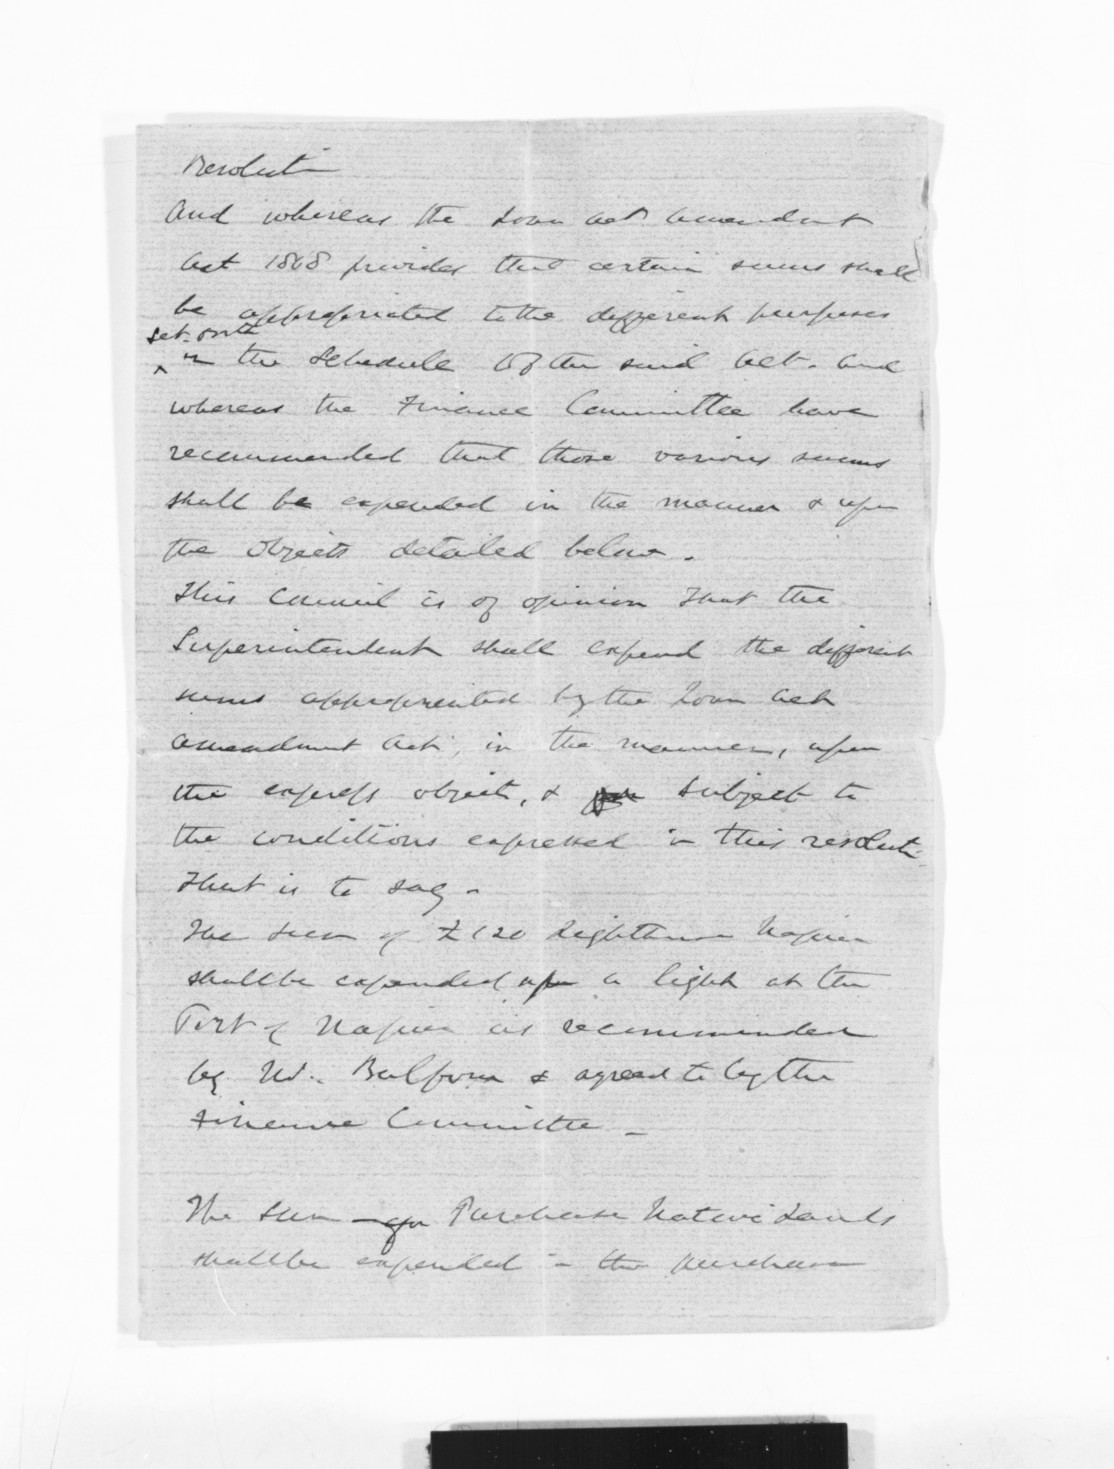 Resolution
And whereas the Loan Act Amendment
Act 1868 provides that certain sums shall
be appropriated to the different purposes
set out
^ in the Schedule of the said Act. And
whereas the Finance Committee have
recommended that those various sums
shall be expended in the manner & upon
the objects detailed below.
This Council is of opinion That the
Superintendent shall expend the different
sums appropriated by the Loan Act
Amendment Act, in the manner, upon
the express object, & subject to
the conditions expressed in this resolution
That is to say -
The sum of £120 Lighthouse Napier
shall be expended upon a light at the
Port of Napier as recommended
by Mr. Balfour & agreed to by the
Finance Committee -
The sum for Purchase Native Lands
shall be expended in the purchase